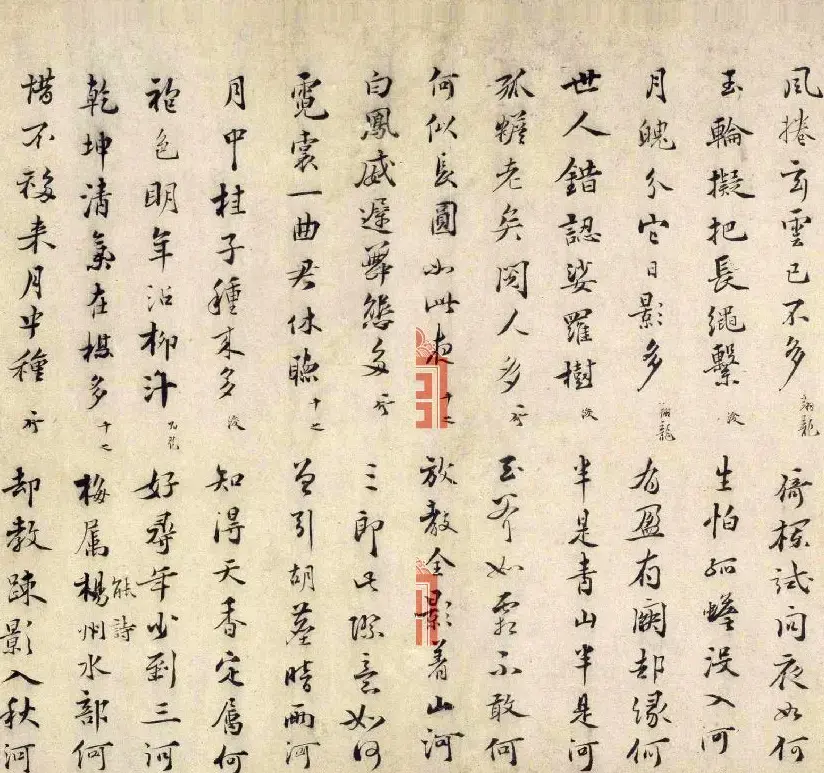 風捲玄雲已不多 翔龍 倚樓試問夜如何
玉輪擬把長繩繫 浚 生怕孤蟾没入河
月魄分它日影多 翔龍 有盈有闕却緣何
世人錯認娑羅樹 浚 半是青山半是河
孤蟾老矣閱人多 玉斧如霜不敢何
何似長圓如此夜 十二 放教全影著山河
白鳳威遲舞態多 三郎此際意如何
霓裳一曲君休聽 十七 曾引胡塵暗兩河
月中桂子種來多 浚 知得天香定屬何
袍色明年沾柳汁 好尋年少到三河
乾坤清氣在楳多 十七 梅屬楊州水部何
能詩
惜不移來月中種 却教疎影入秋河